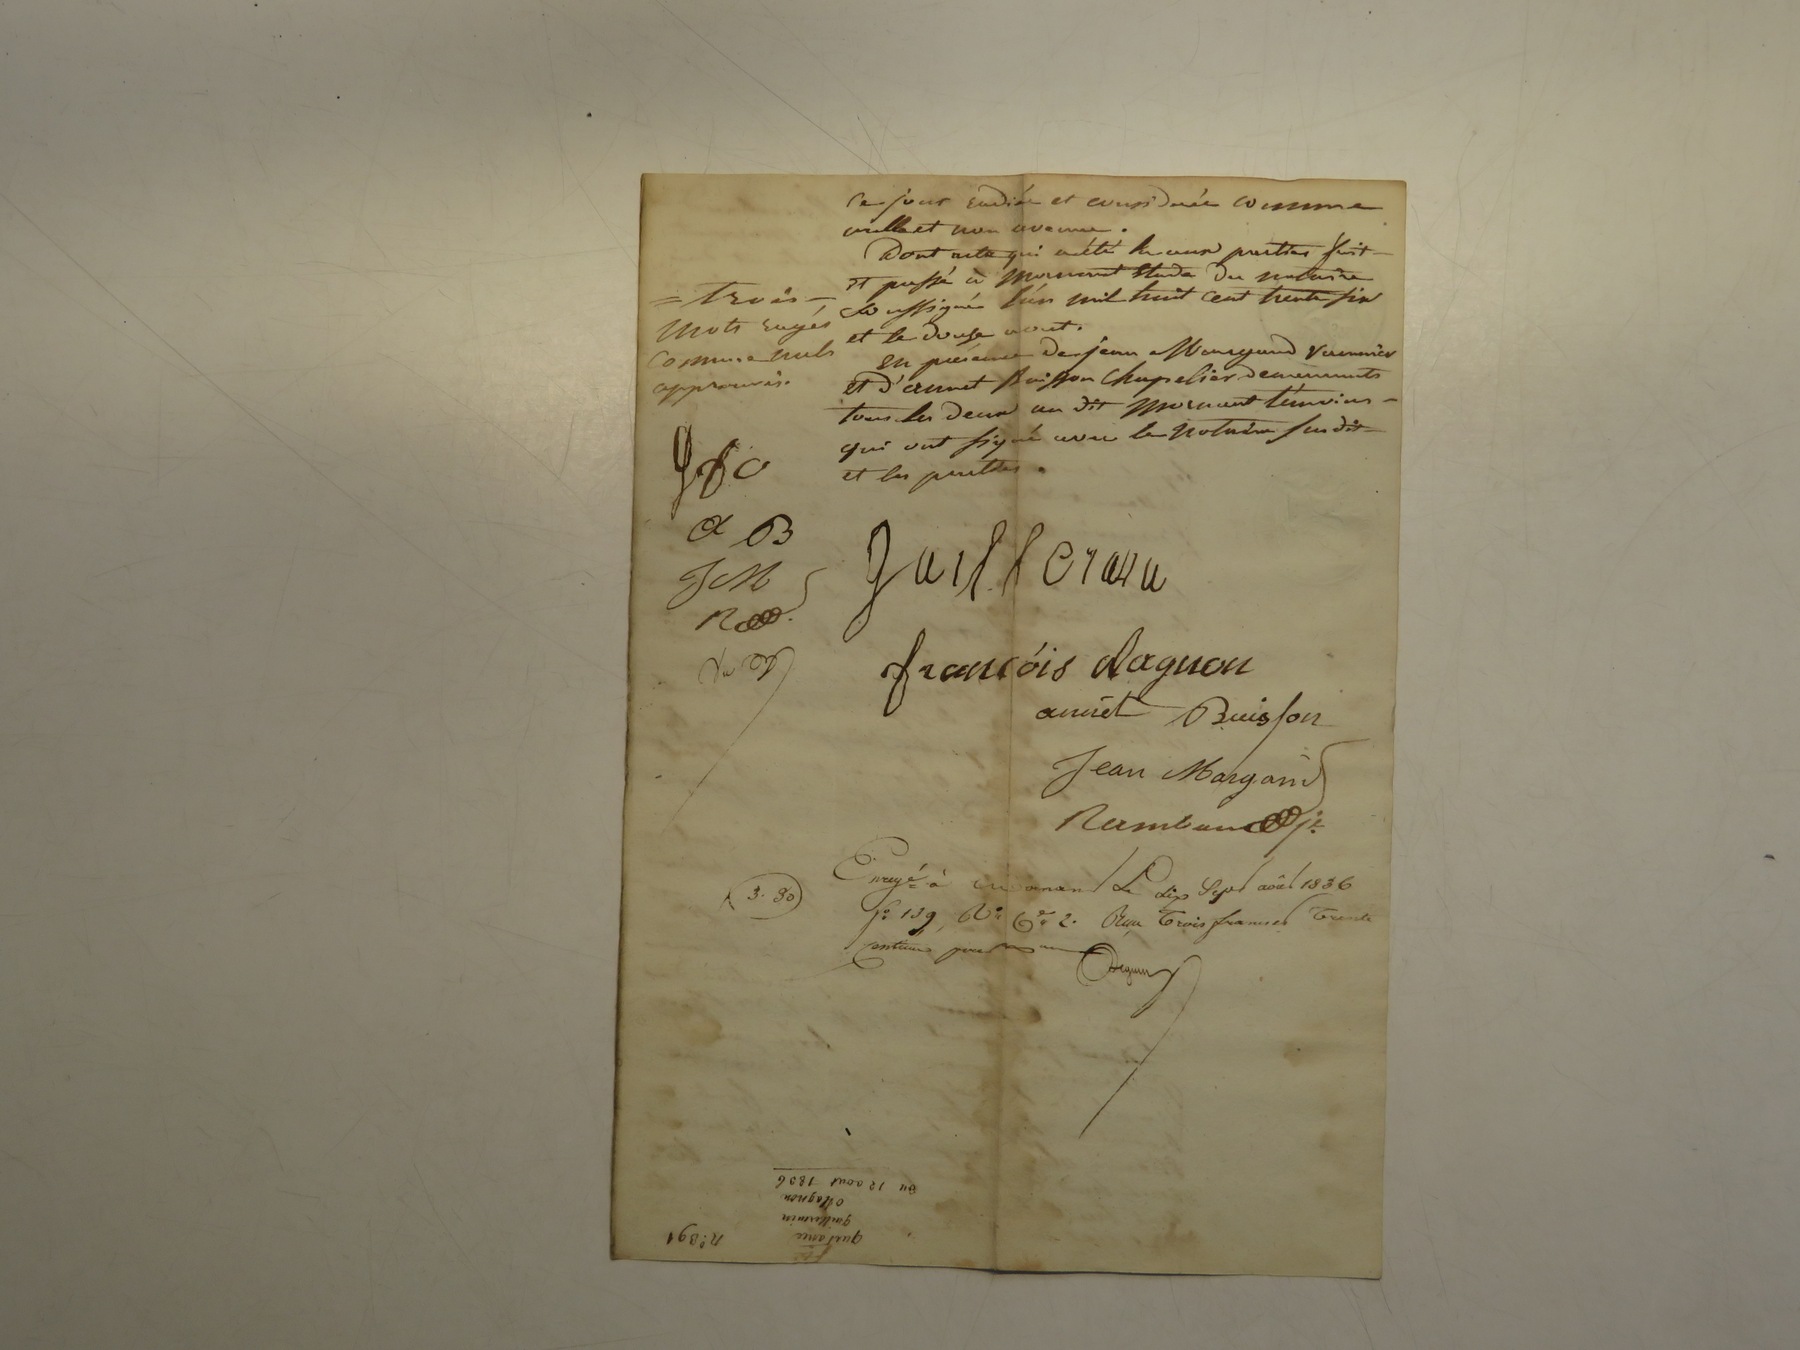 ce jour radiée et considérée comme
nulle et non avenue.
Dont acte qui a été lu aux parties fait
et passé à Mornant Etude du notaire
soussigné l'an mil huit cent trente six
et le douze aout.
En présence de jean Margand
et d'annet Buisson Chapelier demeurants
tous les deux au dit Mornant témoins
qui ont signé avec le Notaire susdit
et les parties.
= trois
mots rayés
comme nuls
approuvés.
a B
JM
R
françois dagnon
annet Buisson
Jean Margand
Rambaud jе
3. 30
Enregé à Mornant Le dix Sept août 1836
fo 139, Ro Ces 2. Reçu trois francs trente
centimes
quittance
guillermin
Dagnon
du 12 aout 1836
No. 391